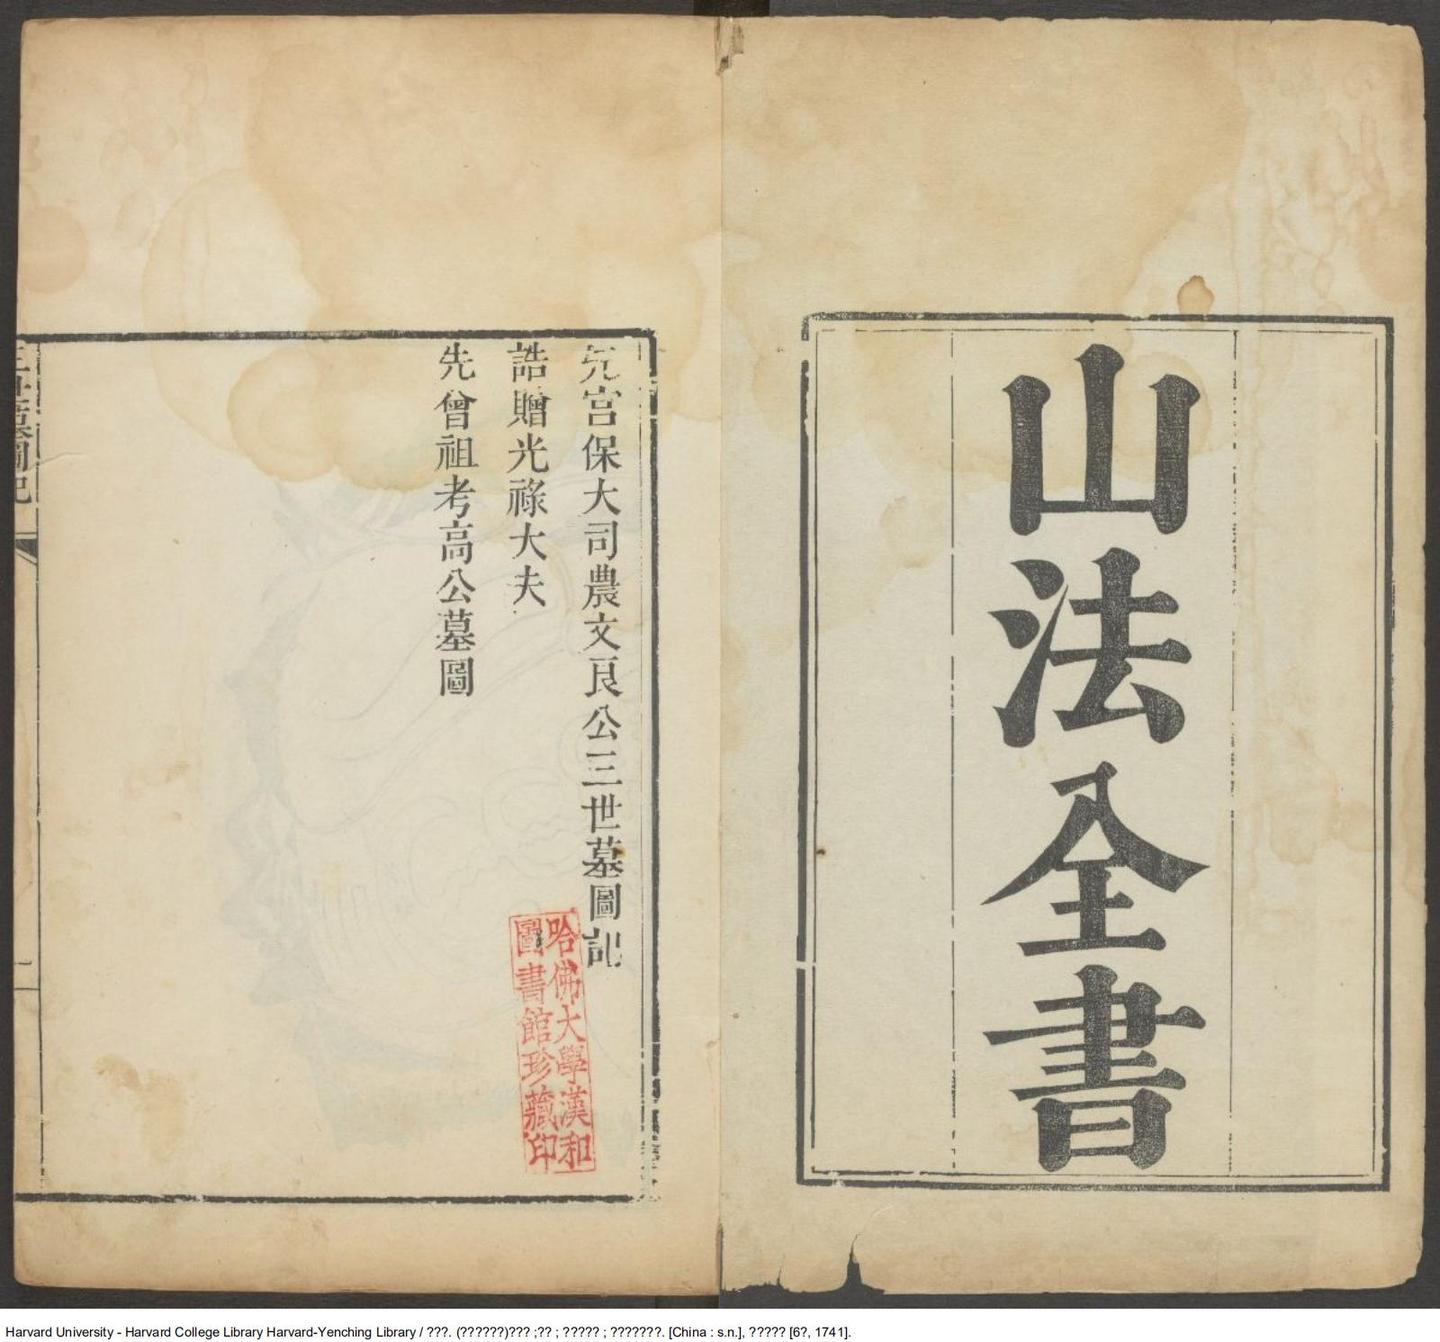 山法全書
先宮保大司農文良公三世墓圖記
誥贈光祿大夫
先曾祖考高公墓圖
哈佛大學漢和
圖書館珍藏印
三世墓圖記
二
Harvard University - Harvard College Library Harvard-Yenching Library / ???. (??????)??? ;?? ; ????? ; ???????. [China : s.n.], ????? [6?, 1741].